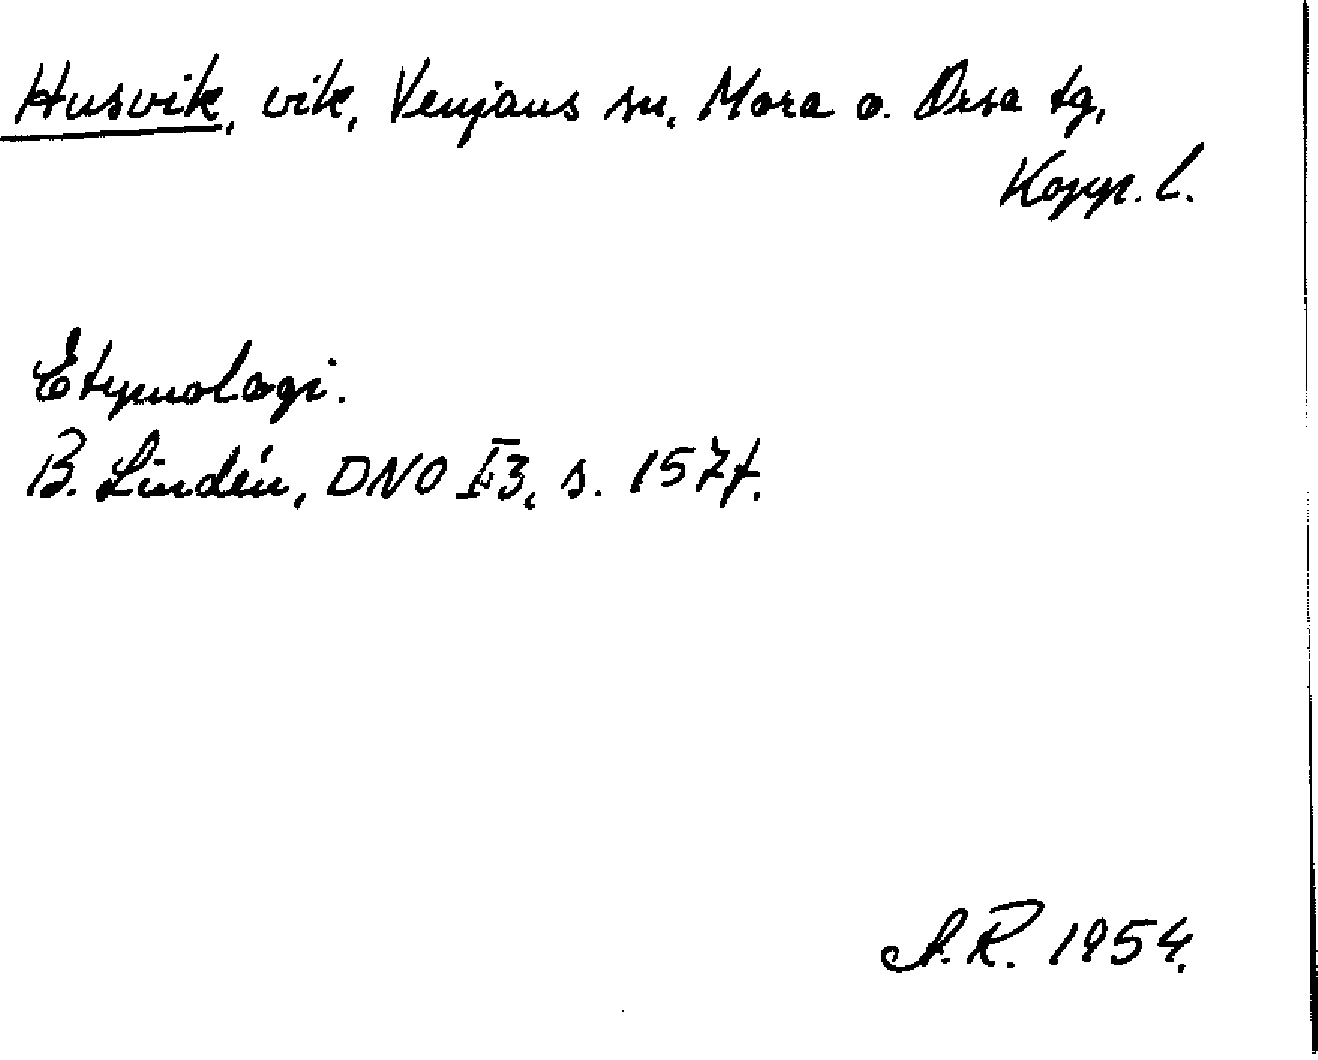 Husvik, vik, Venjans sn, Mora o. Orsa tg,
Kopp. l.
Etymologi.
B. Lindén, DNO I:3, s. 157f.
A.R. 1954.